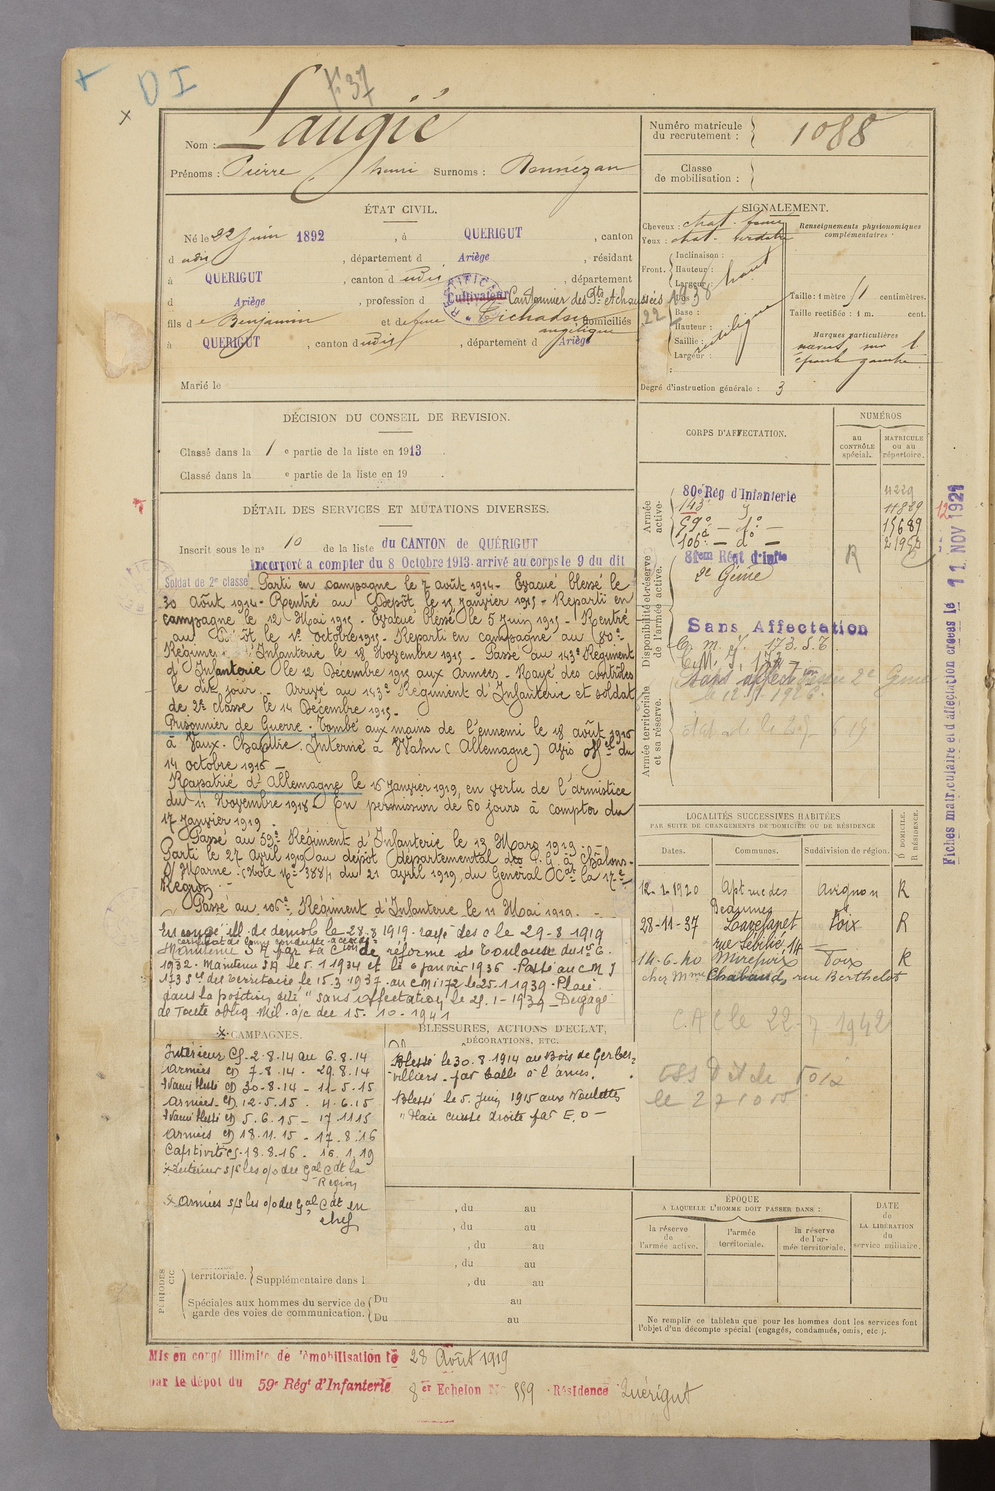 D I
F 37
Nom : Laugié
Prénoms : Pierre henri Surnoms : Bonnézan
Numéro matricule du recrutement : 1088
Classe de mobilisation :
ÉTAT CIVIL.
Né le 22 juin 1892 , à QUERIGUT , canton
d udis , département d Ariège , résidant
à QUERIGUT , canton d udis , département
d Ariège , profession d Cultivateur Cantonnier des Pts et chaussées
fils de Benjamin et de feue domiciliés
angélique
à QUERIGUT , canton d udis , département d Ariège
Marié le
SIGNALEMENT.
Cheveux : chat. foncé
Yeux : chat. verdâtre
Front.
Inclinaison :
Hauteur : haut
Largeur :
Base :
Hauteur : rectiligne
Saillie :
Largeur :
Renseignements physionomiques complémentaires :
Taille : 1 mètre 51 centimètres.
Taille rectifiée : 1 m. cent.
Marques particulières
naevus sur l'
épaule gauche
Degré d'instruction générale : 3
DÉCISION DU CONSEIL DE REVISION.
Classé dans la 1 e partie de la liste en 1913
Classé dans la e partie de la liste en 19
DÉTAIL DES SERVICES ET MUTATIONS DIVERSES.
Inscrit sous le n° 10 de la liste du CANTON de QUÉRIGUT
Incorporé à compter du 8 Octobre 1913. arrivé au corps le 9 du dit
Soldat de 2e classe Parti en campagne le 7 août 1914 - Evacué blessé le
30 Août 1914 - Rentré au Dépôt le 15 Janvier 1915 - Reparti en
campagne le 12 Mai 1915 - Evacué blessé le 5 Juin 1915 - Rentré
au Dépôt le 1er Octobre 1915 - Reparti en campagne au 80e
Régiment d'Infanterie le 18 Novembre 1915 - Passé au 143e Régiment
d'Infanterie le 12 Décembre 1915 aux Armées - Rayé des contrôles
le dit jour - Arrivé au 143e Régiment d'Infanterie et soldat
de 2e classe le 14 Décembre 1915 -
Prisonnier de Guerre - Tombé aux mains de l'ennemi le 18 août 1916
à Vaux-Chapitre. Interné à Wahn (Allemagne) Avis offel du
14 octobre 1916 -
Rapatrié d'Allemagne le 16 Janvier 1919, en vertu de l'armistice
du 11 Novembre 1918. En permission de 60 jours à compter du
17 Janvier 1919
Passé au 59e Régiment d'Infanterie le 13 Mars 1919 -
Parti le 27 Avril 1919 au dépôt départemental des P.G. à Châlons-
S/Marne. (Note No 3884 du 21 Avril 1919, du Général Ct la 17e
Région -
Passé au 106e Régiment d'Infanterie le 11 Mai 1919. -
En congé ill. de démob le 28.8.1919. rayé des c le 29-8-1919
Maintenu S A par la Cion de réforme de Toulouse du 1er 6.
1932. Maintenu SA le 5.1.1934 et le 6 janvier 1936. Passé au C M I
173 Son des Territoriale le 15.3.1937. au CMI 172 le 25.1.1939. Placé
dans la position dite "sans affectation" le 25-1-1939 - Dégagé
de toute oblig. mil. a/c du 15-10-1941
CAMPAGNES.
Intérieur CS. 2.8.14 au 6.8.14
Armées CD 7-8.14 - 29.8.14
Evacué blessé CD 30-8-14 - 11-5-15
Armées CD. 12.5.15 - 4.6.15
Evacué blessé CD 5.6.15 - 17.11.15
Armées CD 18.11.15 - 17.8.16
Captivité CS. 18.8.16 - 16.1.19
x Intérieur s/s les o/o du Gal Cdt la Région
x Armées s/s les o/o du Gal Cdt en chef
BLESSURES, ACTIONS D'ÉCLAT, DÉCORATIONS, ETC.
Blessé le 30.8.1914 au Bois de Gerbé-
villiers - par balle à l'anus.
Blessé le 5 Juin 1915 aux Noulettes
"Plaie cuisse droite par E.O -
, du au
, du au
, du au
, du au
territoriale. Supplémentaire dans l , du au
Spéciales aux hommes du service de garde des voies de communication. Du au
Du au
CORPS D'AFFECTATION.
NUMÉROS
au CONTRÔLE spécial.
MATRICULE ou au répertoire.
Armée active.
80e Rég d'Infanterie 4229
143e 11889
59e - do - 15689
106e - do - 21952
Disponibilité et réserve de l'armée active.
81em Régt d'Infie R
2e Génie
Sans Affectation
C. m. I. 173. S.T.
C. M. I. 172
Armée territoriale et sa réserve.
Fiches matriculaire et d'affectation créées le 11 NOV 1921
12
LOCALITÉS SUCCESSIVES HABITÉES
PAR SUITE DE CHANGEMENTS DE DOMICILE OU DE RÉSIDENCE
Dates.
Communes.
Subdivision de région.
D. DOMICILE. R. RÉSIDENCE.
12-2-1920 Apt rue des Beaumes Avignon R
28-11-37 Lavelanet Foix R
14-6-40 Mirepoix Foix R
chez Mme Chabaud, rue Berthelot
C.A.C le 22-7 1942
ÉPOQUE
A LAQUELLE L'HOMME DOIT PASSER DANS :
la réserve de l'armée active.
l'armée territoriale.
la réserve de l'armée territoriale.
DATE de LA LIBÉRATION du service militaire.
Ne remplir ce tableau que pour les hommes dont les services font
l'objet d'un décompte spécial (engagés, condamnés, omis, etc.).
Mis en congé illimité de démobilisation le 28 Août 1919
par le dépôt du 59e Régt d'Infanterie 8er Echelon N° 559 Résidence Quérigut